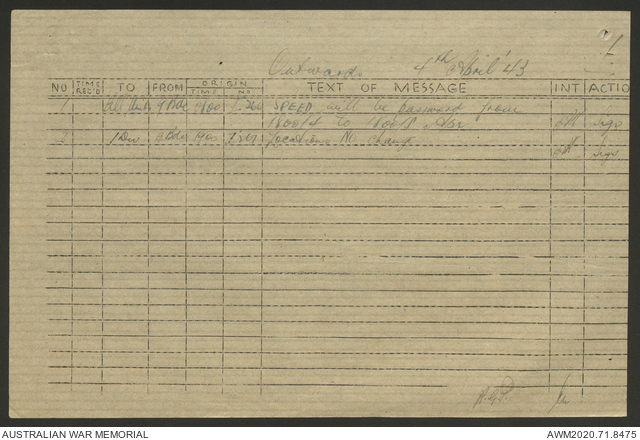 1
Outwards 4th April '43
NO TIME REC'D TO FROM ORIGIN TIME NO TEXT OF MESSAGE INT ACTION
1 All Units 1900 SPEED will be password from
1800/4 to 1800/8 Apr
2 1 Div Bde 1900 Locations No Change
AUSTRALIAN WAR MEMORIAL AWM2020.71.8475